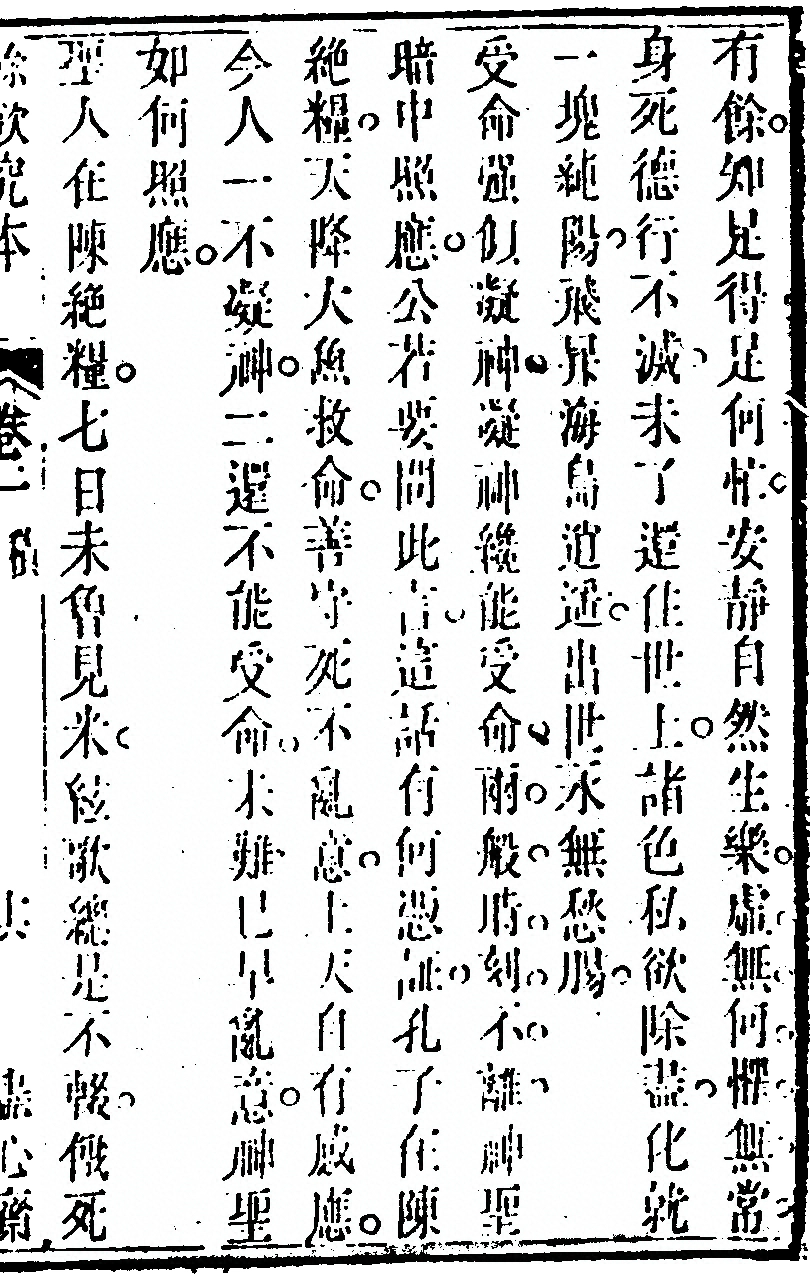 有餘知足得足何忙安靜自然生樂虛無何懼無常
身死德行不滅未了還住世上諸色私欲除盡化就
一塊純陽飛昇海島逍遥出世永無愁腸
受命强似凝神凝神纔能受命兩般時刻不離神聖
暗中照應公若要問此言這話有何憑証孔子在陳
絶糧天降大魚救命善守死不亂意上天自有感應
今人一不凝神二還不能受命未難已早亂意神聖
如何照應
聖人在陳絶糧七日未魯見米絃歌總是不輟餓死
卷二